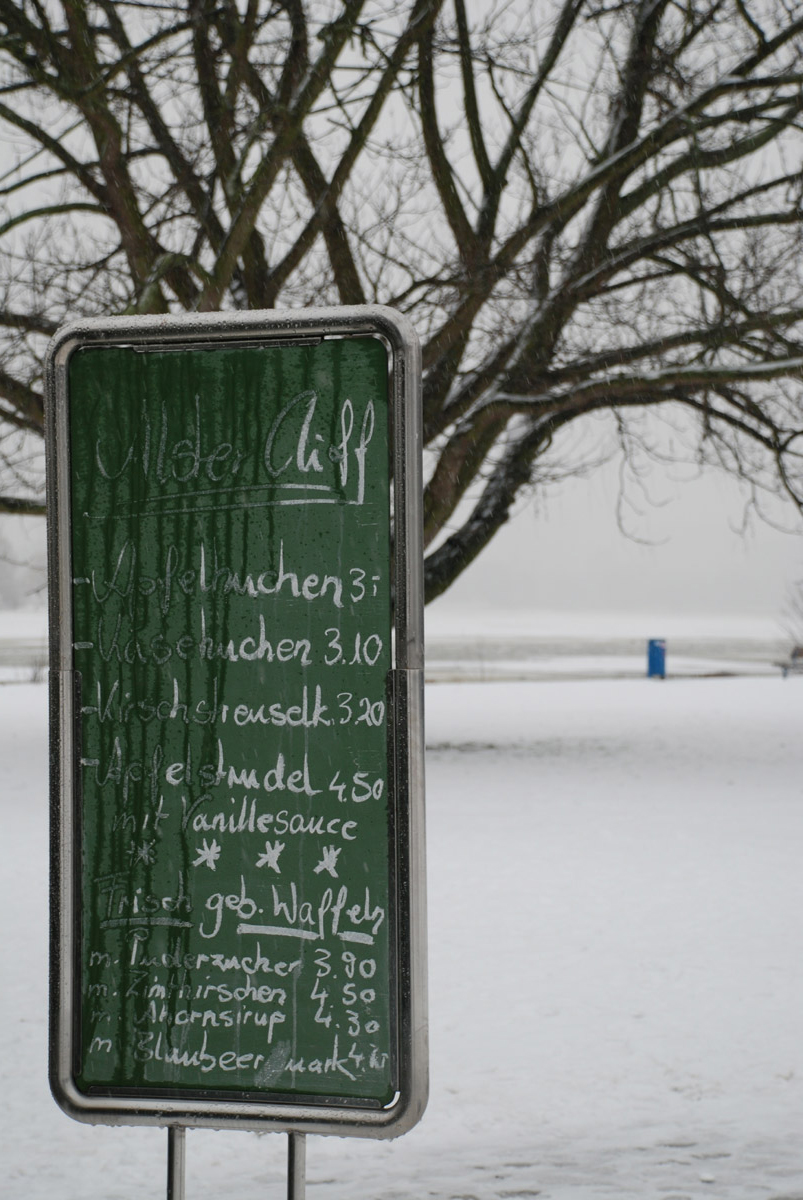 Alster Cliff
- Apfelkuchen 3,-
- Käsekuchen 3.10
- Kirschstreuselk. 3.20
- Apfelstrudel 4.50
mit Vanillesauce
* * * *
Frisch geb. Waffeln
m. Puderzucker 3.90
m. Zimtkirschen 4.50
m. Ahornsirup 4.30
m Blaubeermark